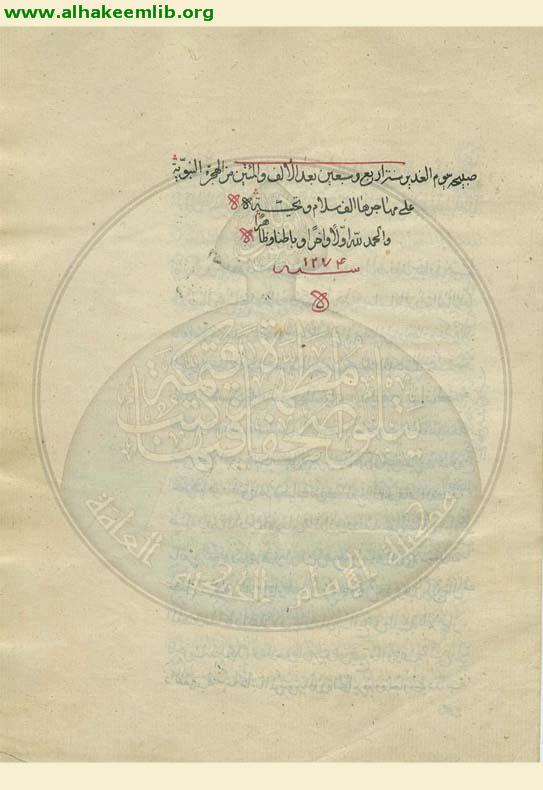 www.alhakeemlib.org
صبيحة يوم الغدير سنة اربع وسبعين بعد الألف والمئتين من الهجرة النبوية
على مهاجرها الف سلام وتحية
والحمد لله اولا واخرا وباطنا وظاهرا
سنه ١٢٧۴
يتلو صحفا مطهرة فيها كتب قيمة
مكتبة الإمام الحكيم العامة